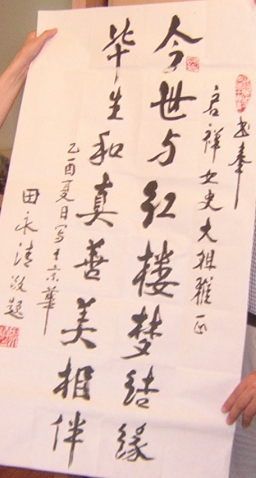 书奉
启祥女史大姐雅正
今世与红楼梦结缘
毕生和真善美相伴
乙酉夏日写于京华
田永清敬题